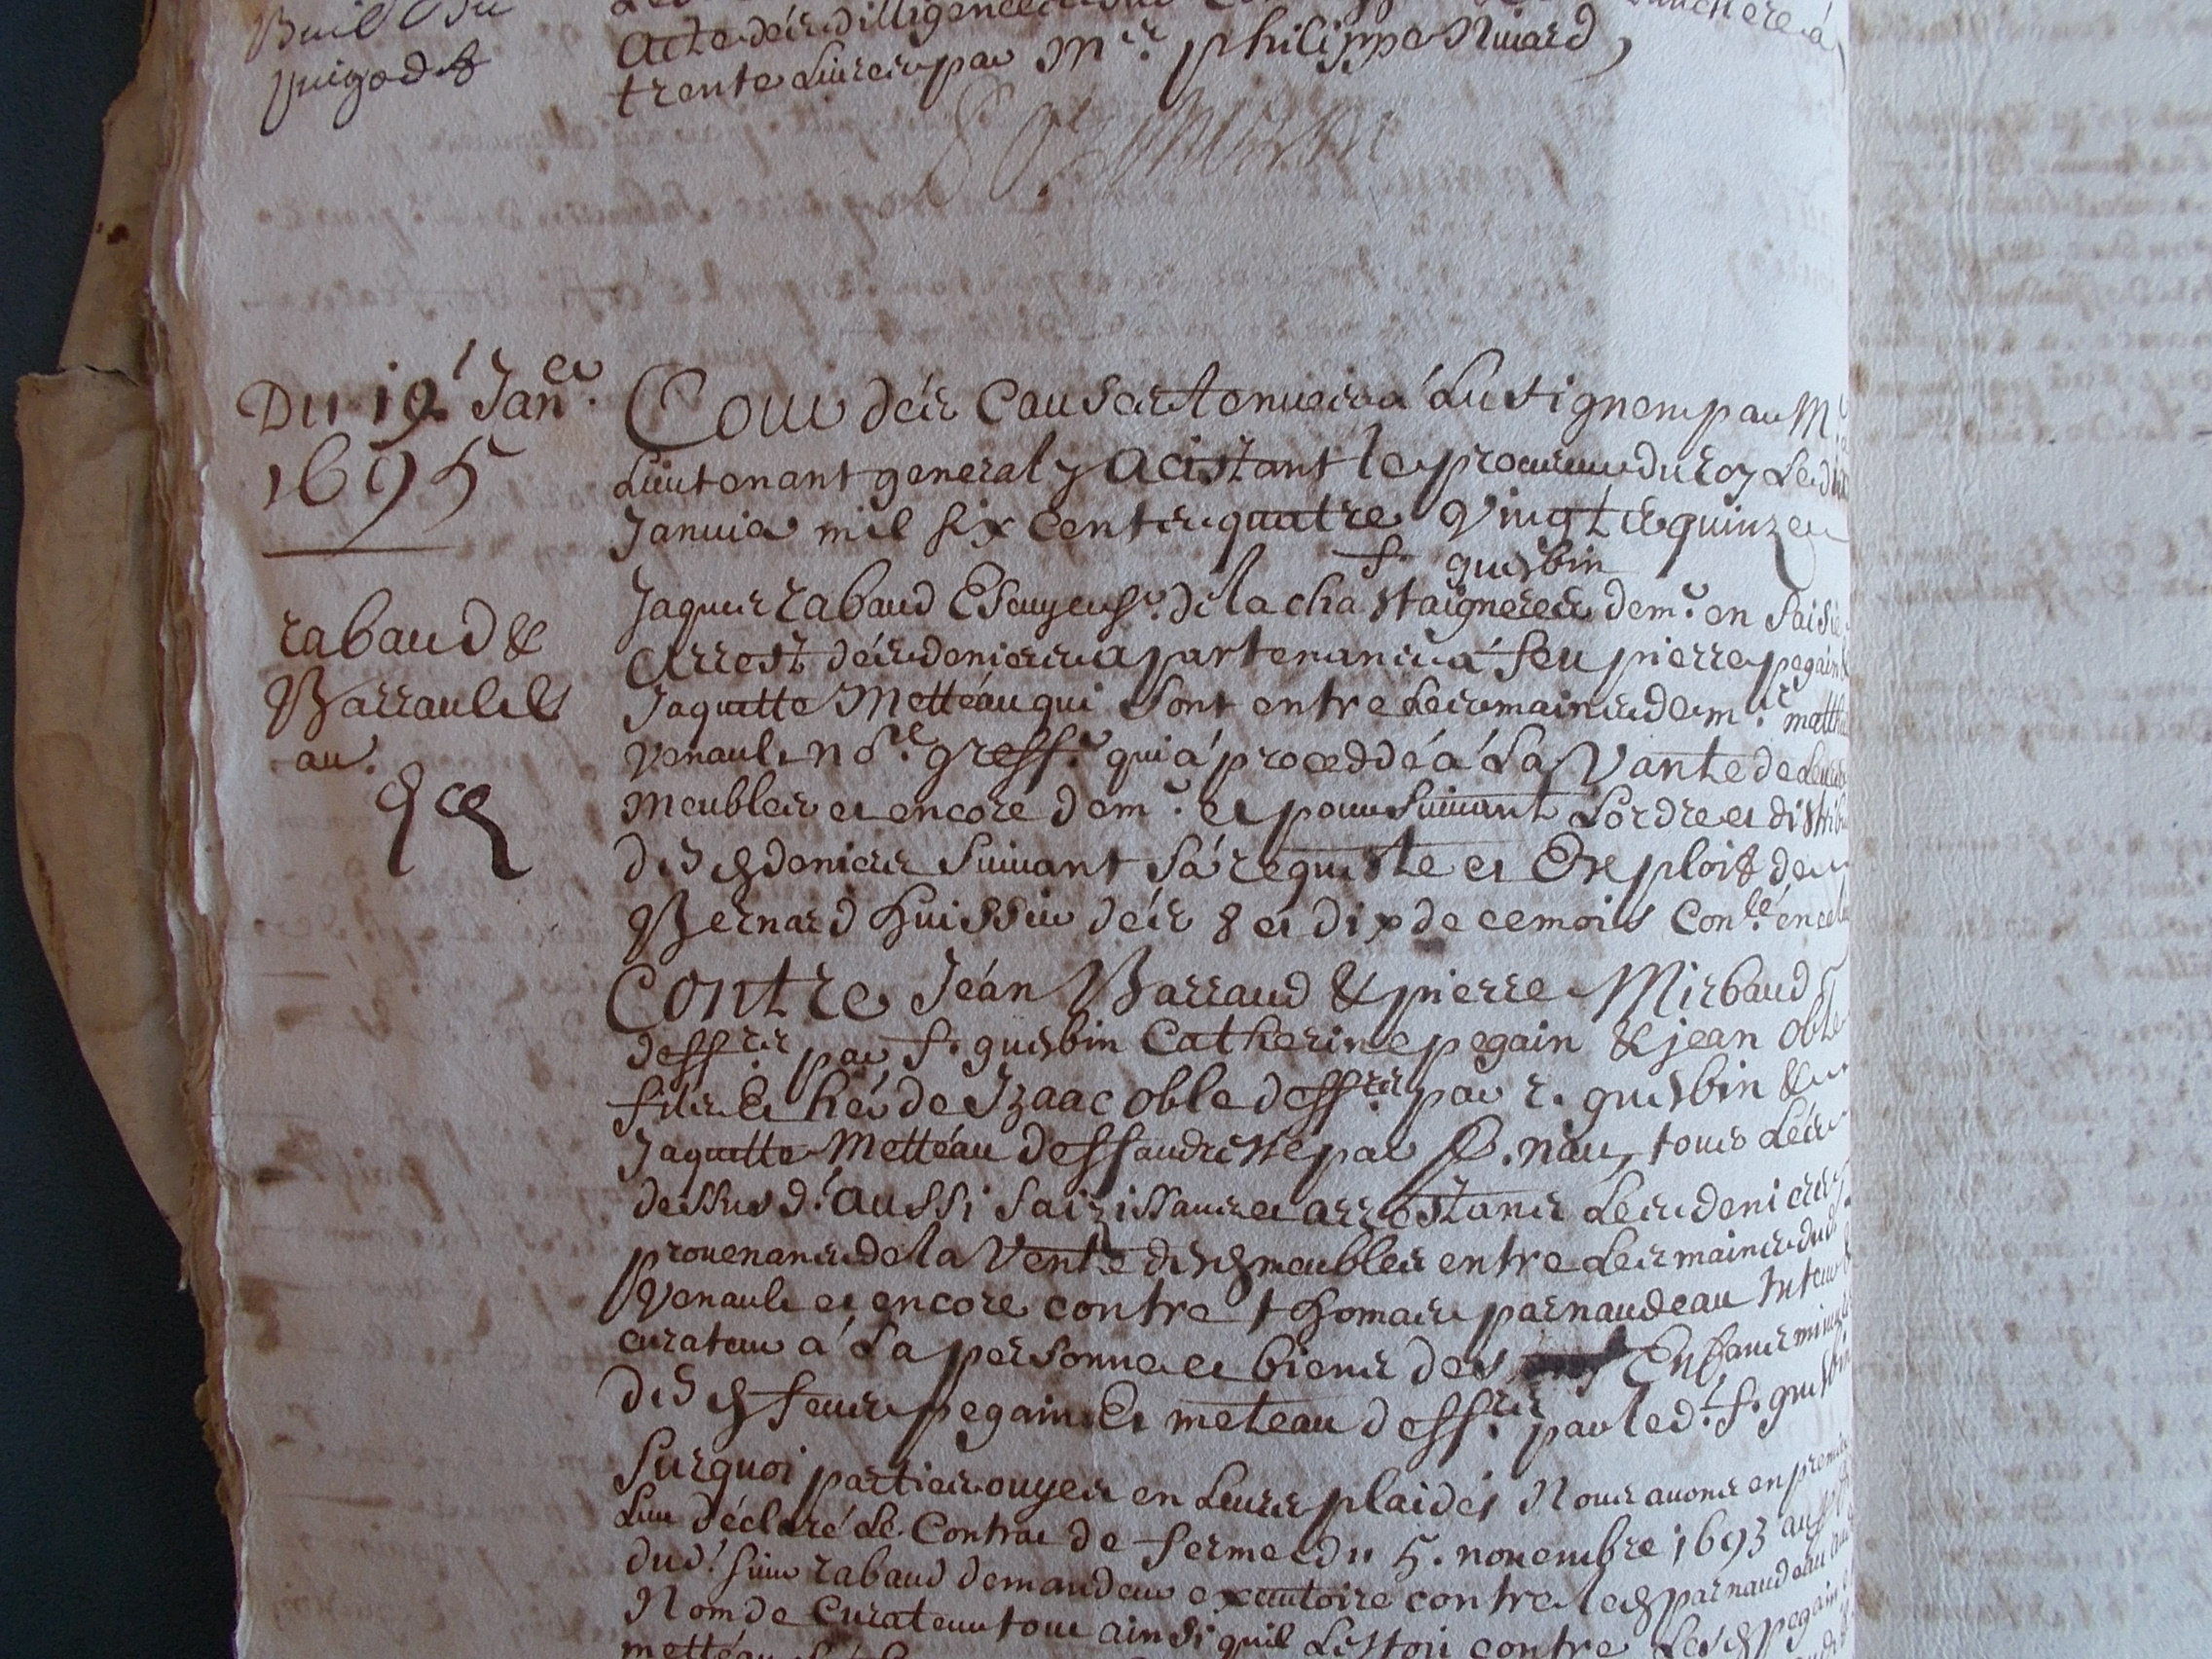 Acte de ses dilligences
trente Livres par Mr. philippe Niuard,
Du 19 Janer.
1695
rabaud &
Barrault &
au.
Cour des Causes tenues a Lusignem par Mr
Lieutenant general y Acistant le procureur du roy Le
Januier mil six cents quatre Vingts quinze
f. guesbin
Jaques rabaud Escuyer sr. de la chastaigneres demr. en saisie
Arrest des deniers apartenans a feu pierre pegain &
Jaquette Metteau qui sont entre Les mains de mr.
Venault nore. greffr. qui a proceddé a La Vante de Leurs
meubles et encore demr. et poursuiuant Lordre et
desd deniers suiuant sa requeste et Exploits de
Bernard huissier des 8 et dix de ce mois Conlé. en
Contre Jean Barraud & pierre Mirbaud
deffrs par f. guesbin Catherine pegain & jean oble
fils Et her de Izaac oble deffrs par r. guesbin &
Jaquette Metteau deffandresse par nau, tous Les
dessus d. aussi saizissans et arrestans Les deniers
prouenans de la Vente desd meubles entre Les mains dud
Venault et encore contre thomas parnaudeau tuteur &
curateur a La personne et biens des Enfans
desd feurs pegain Et meteau deffrs par led. f. guesbin
Surquoi parties ouyes en Leurs plaides Nous auons en
Lieu déclaré Le Contrat de ferme du 5. nouembre 1693
dud. sieur rabaud demandeur exautoire contre led parnaudeau au
Nom de Curateur tout ainsi quil Lestoit contre Lesd pegain
metteau